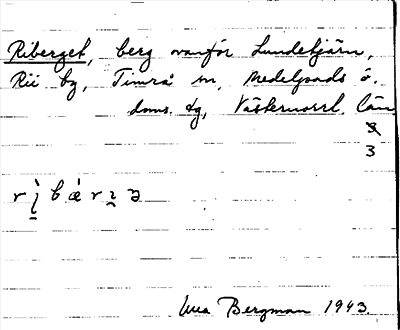 Riberget, berg ovanför Lundetjärn,
Rii by, Timrå sn, Medelpads ö.
doms. dg, Västernorrl. län
3
3
rìbǽrıə
Bergman 1943.